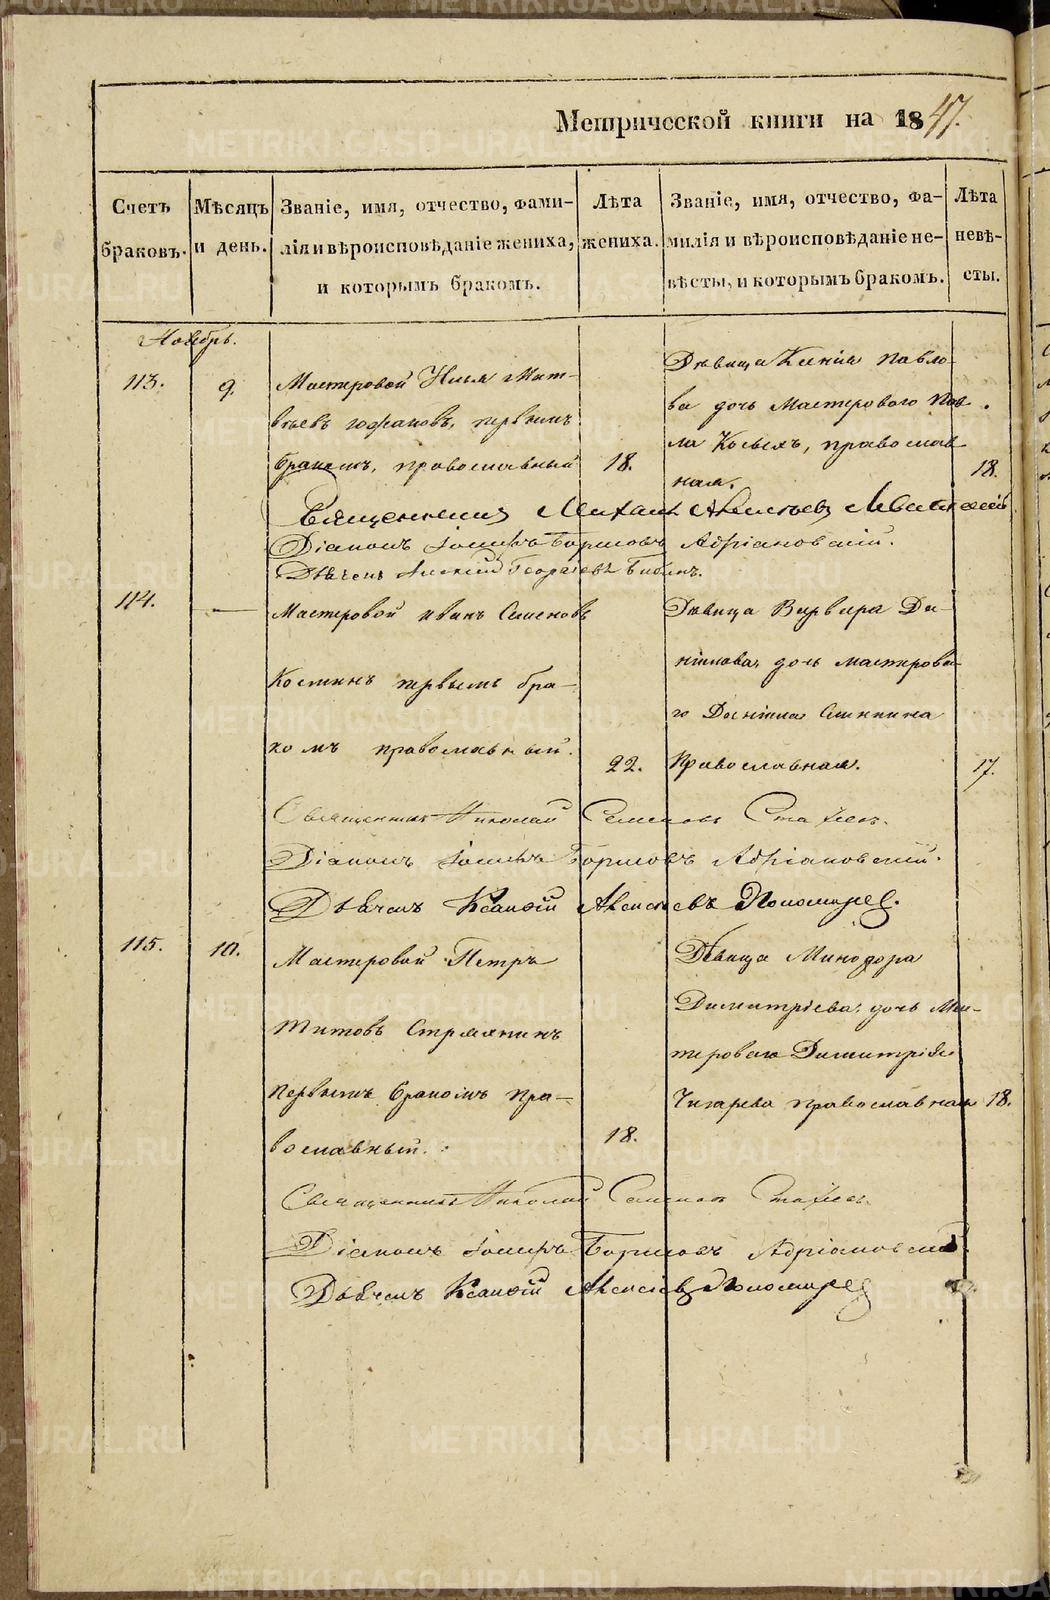 Метрической книги на 1847.
Счетъ браковъ.
Мѣсяцъ и день.
Званіе, имя, отчество, фами-
лія и вѣроисповѣданіе жениха,
и которымъ бракомъ.
Лѣта жениха.
Званіе, имя, отчество, фа-
милія и вѣроисповѣданіе не-
вѣсты, и которымъ бракомъ.
Лѣта невѣ-
сты.
Ноябрь.
113.
9.
Мастеровой Илья Мат-
вѣевъ первымъ
бракомъ, православный
18.
Дѣвица Ксенія Павло-
ва дочь Мастероваго Пав-
ла Косыхъ, православ
ная.
18.
Священникъ Михаилъ
Діаконъ Іосифъ Борисовъ Адріановскій.
Дьячекъ Алексій Георгіевъ
114.
—
Мастеровой Иванъ Семеновъ
Костинъ первымъ бра-
комъ православный.
22.
Дѣвица Варвара Да-
ніилова, дочь мастерова-
го Даніила
Православная.
17.
Священникъ Николай Семеновъ
Діаконъ Іосифъ Борисовъ Адріановскій.
Дьячекъ Алексѣевъ Пономаревъ.
115.
10.
Мастеровой Петръ
Титовъ
первымъ бракомъ пра-
вославный.
18.
Дѣвица Минодора
Димитріева, дочь Мас-
тероваго Димитрія
православная
18.
Священникъ Николай Семеновъ
Діаконъ Іосифъ Борисовъ Адріановскій.
Дьячекъ Алексѣевъ Пономаревъ
METRIKI.GASO-URAL.RU